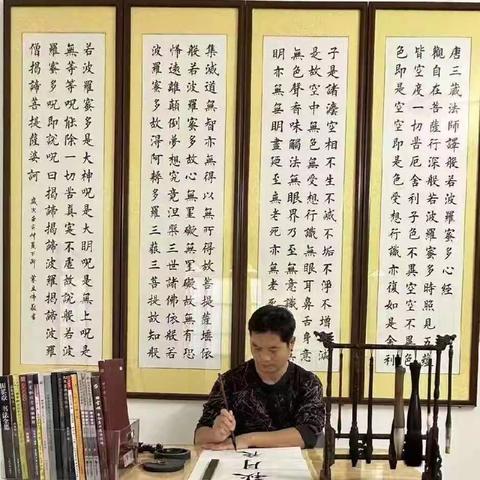 唐三藏法師譯般若波羅蜜多心經
觀自在菩薩行深般若波羅蜜多時照見五蘊
皆空度一切苦厄舍利子色不異空空不異色
色即是空空即是色受想行識亦復如是舍利
子是諸法空相不生不滅不垢不淨不增不減
是故空中無色無受想行識無眼耳鼻舌身意
無色聲香味觸法無眼界乃至無意識
明亦無無明盡乃至無老死亦無老死
集滅道無智亦無得以無所得故菩提薩埵依
般若波羅蜜多故心無罣礙無罣礙故無有恐
怖遠離顛倒夢想究竟涅槃三世諸佛依般若
波羅蜜多故得阿耨多羅三藐三菩提故知般
若波羅蜜多是大神呪是大明呪是無上呪是
無等等呪能除一切苦真實不虛故說般若波
羅蜜多呪即說呪曰揭諦揭諦波羅揭諦波羅
僧揭諦菩提薩婆訶
秋月